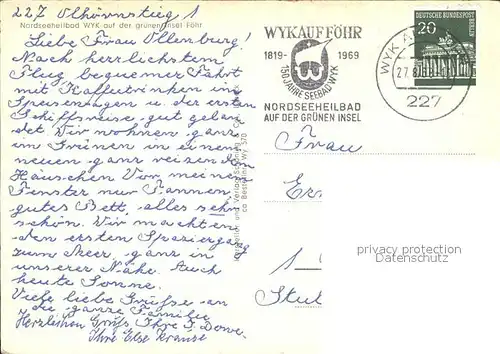 227 Olhörnstieg 1
Nordseeheilbad WYK auf der grünen Insel Föhr
Liebe Frau Ollenburg!
Nach herrlichstem
Flug bequemer Fahrt
mit Kaffeetrinken im
Speisewagen u. der ersten
Schiffsreise, gut gelan-
det. Wir wohnen ganz
im Grünen in einem
neuen ganz reizenden
Häuschen. Vor meinem
Fenster nur Tannen,
gutes Bett, alles sehr
schön. Wir machten
den ersten Spaziergang
zum Meer, ganz in
unserer Nähe. Auch
heute Sonne.
Viele liebe Grüße an
die ganze Familie
Herzlichen Gruß Ihre
Ihre Else Krause
WYK AUF FÖHR
1819- 1969
150 JAHRE SEEBAD WYK
NORDSEEHEILBAD
AUF DER GRÜNEN INSEL
WYK
227
DEUTSCHE BUNDESPOST
BERLIN
20
Frau
1
privacy protection
Datenschutz